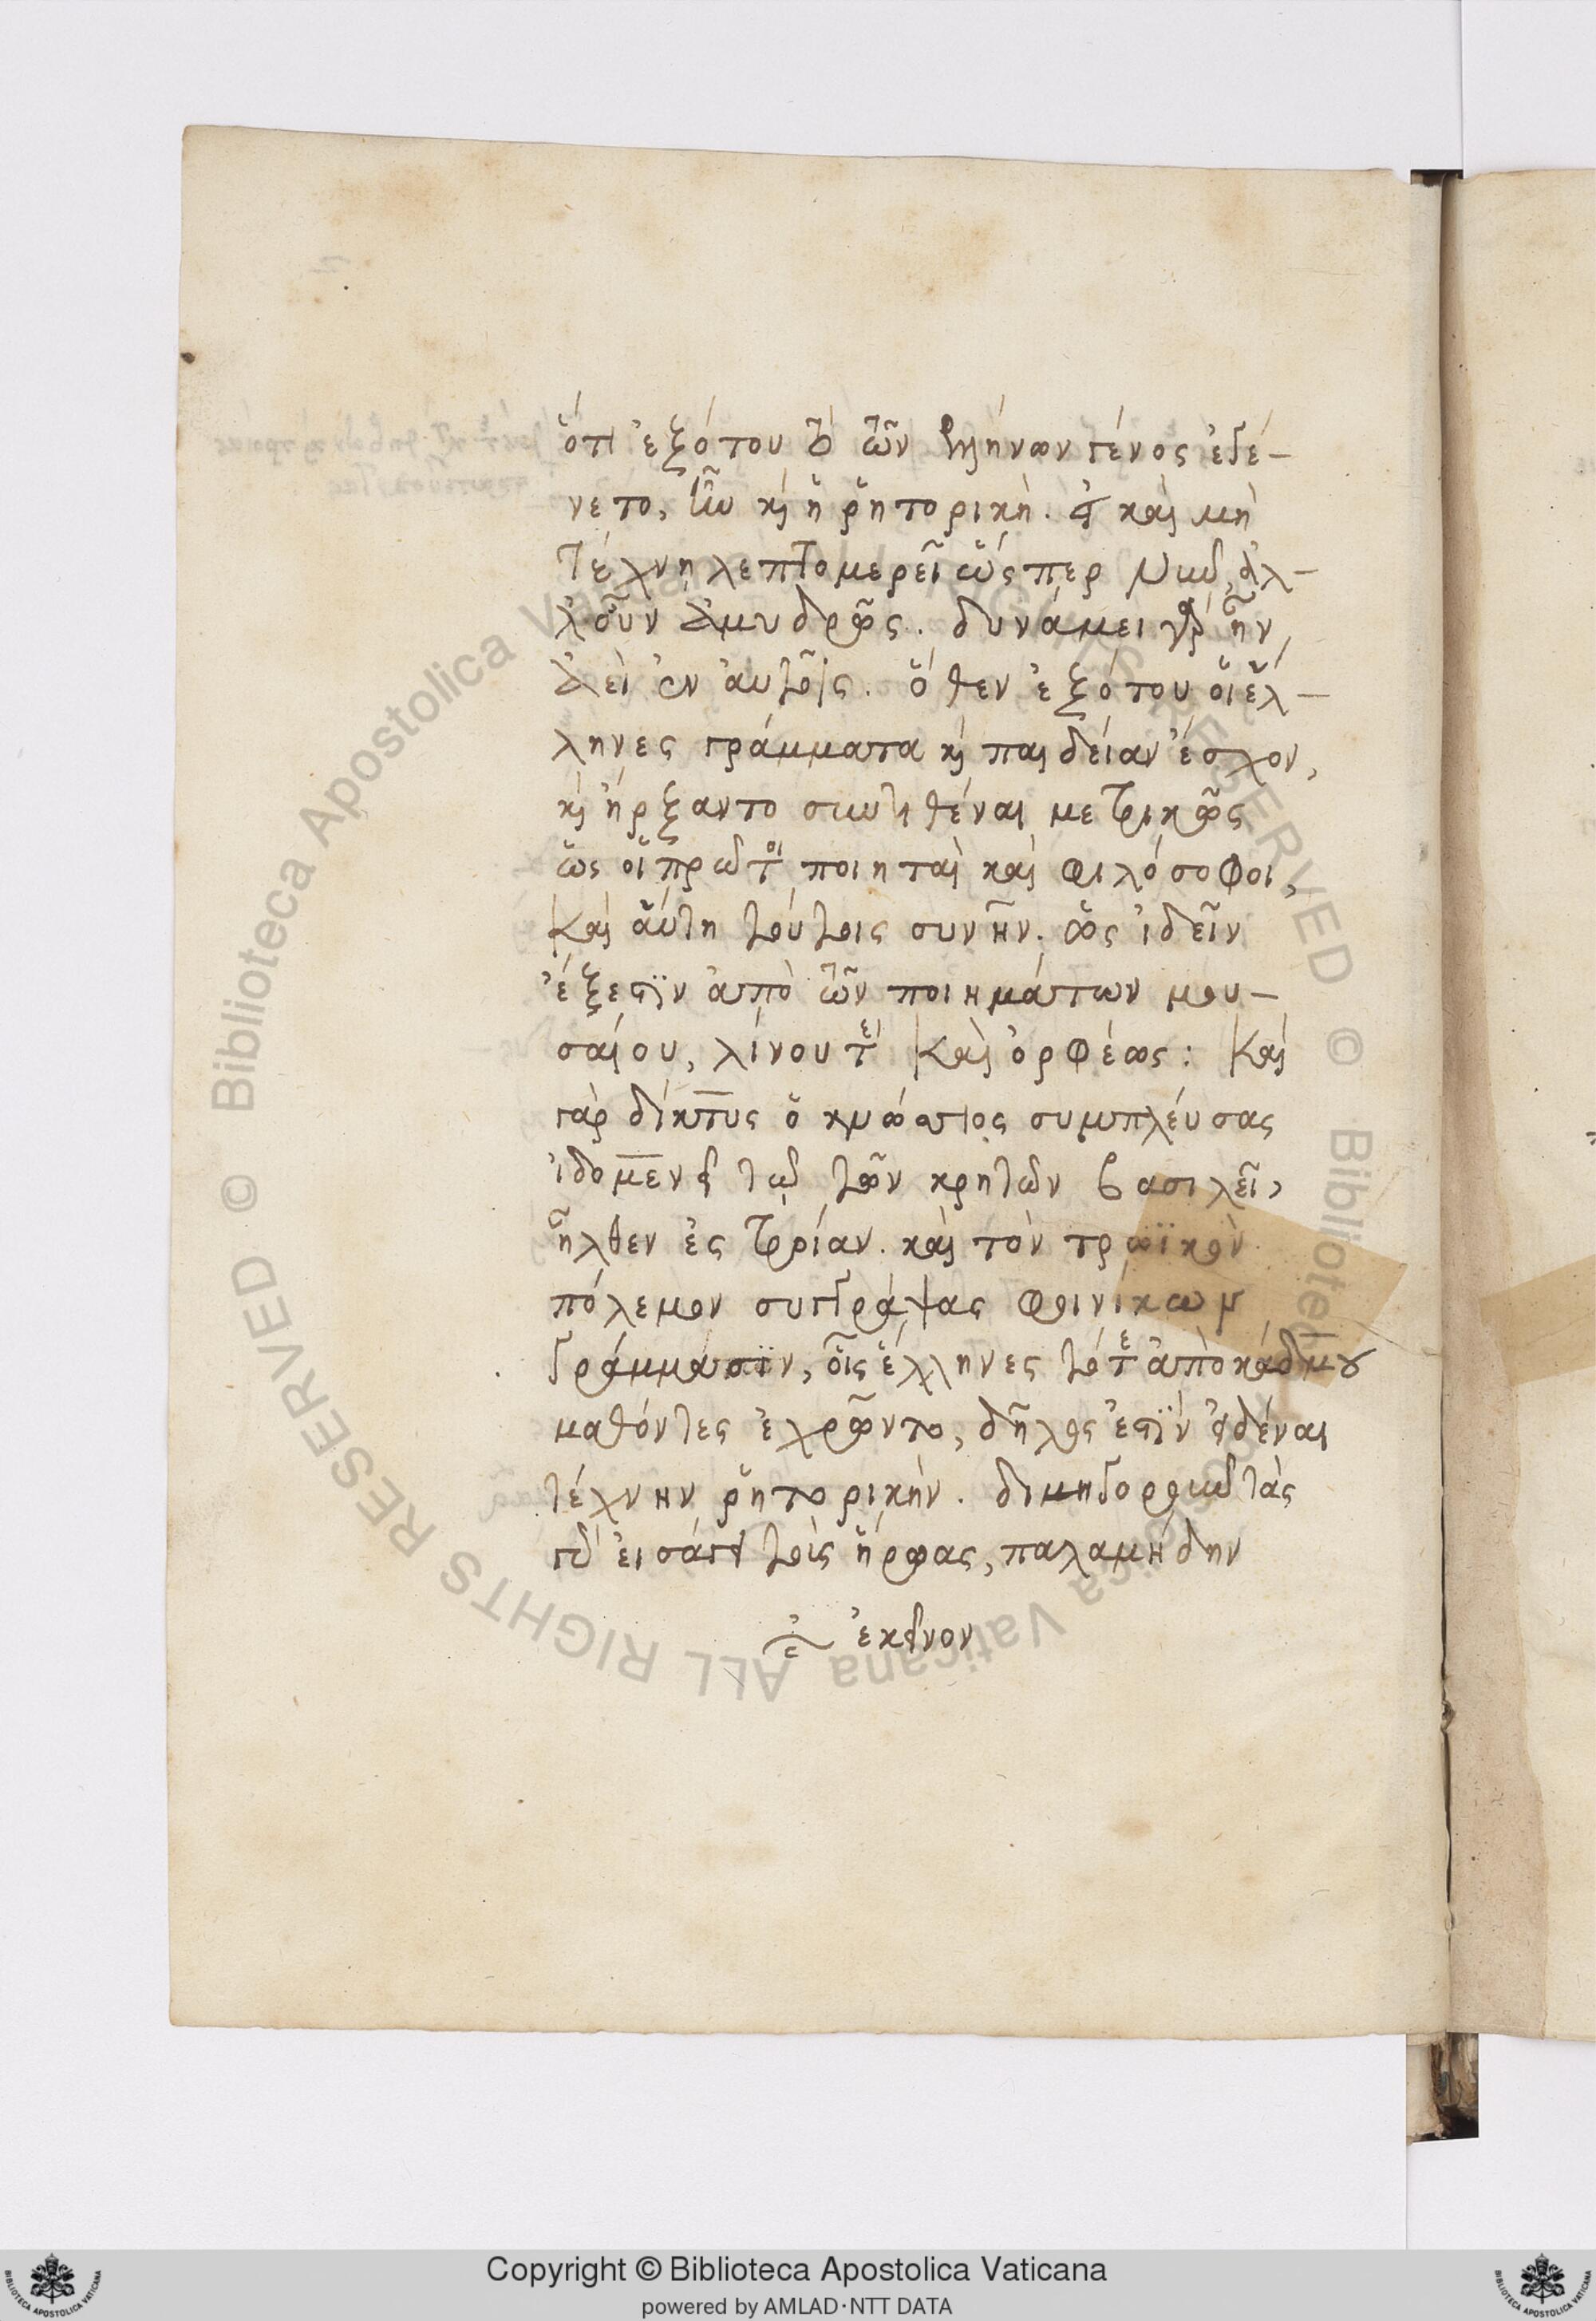 ὅτι ἐξότου τὸ τῶν ἑλλήνων γένος ἐγέ-
νετο, ἦν καὶ ἡ ῥητορικὴ. εἰ καὶ μὴ
τέχνη λεπτομερεῖ ὥσπερ νῦν, ἀλ-
λ' οὖν ἀμυδρῶς. δυνάμει γὰρ ἦν,
ἀεὶ ἐν αὐτοῖς. ὅθεν ἐξότου οἱ ἕλ-
ληνες γράμματα καὶ παιδείαν ἔσχον,
καὶ ἤρξαντο συντιθέναι μετρικῶς
ὡς οἱ πρῶτοι ποιηταὶ καὶ φιλόσοφοι,
καὶ αὕτη τούτοις συνῆν. ὡς ἰδεῖν
ἔξεστιν ἀπὸ τῶν ποιημάτων μου-
σαίου, λίνου τὲ καὶ ὀρφέως: καὶ
γὰρ δίκτυς ὁ κνώσσιος συμπλεύσας
ἰδομενεῖ τῷ τῶν κρητῶν βασιλεῖ,
ἦλθεν ἐς τροίαν. καὶ τὸν τρωϊκὸν
πόλεμον συγγράψας φοινίκων
γράμμασιν, οἷς ἕλληνες τότε ἀπὸ κάδμου
μαθόντες ἐχρῶντο, δῆλός ἐστιν εἰδέναι
τέχνην ῥητορικήν. δημηγοροῦντάς
γὰρ εἰσάγει τοὺς ἥρωας, παλαμήδην
ἐκεῖνον